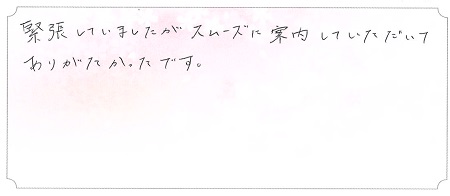 緊張していましたがスムーズに案内していただいて
ありがたかったです。